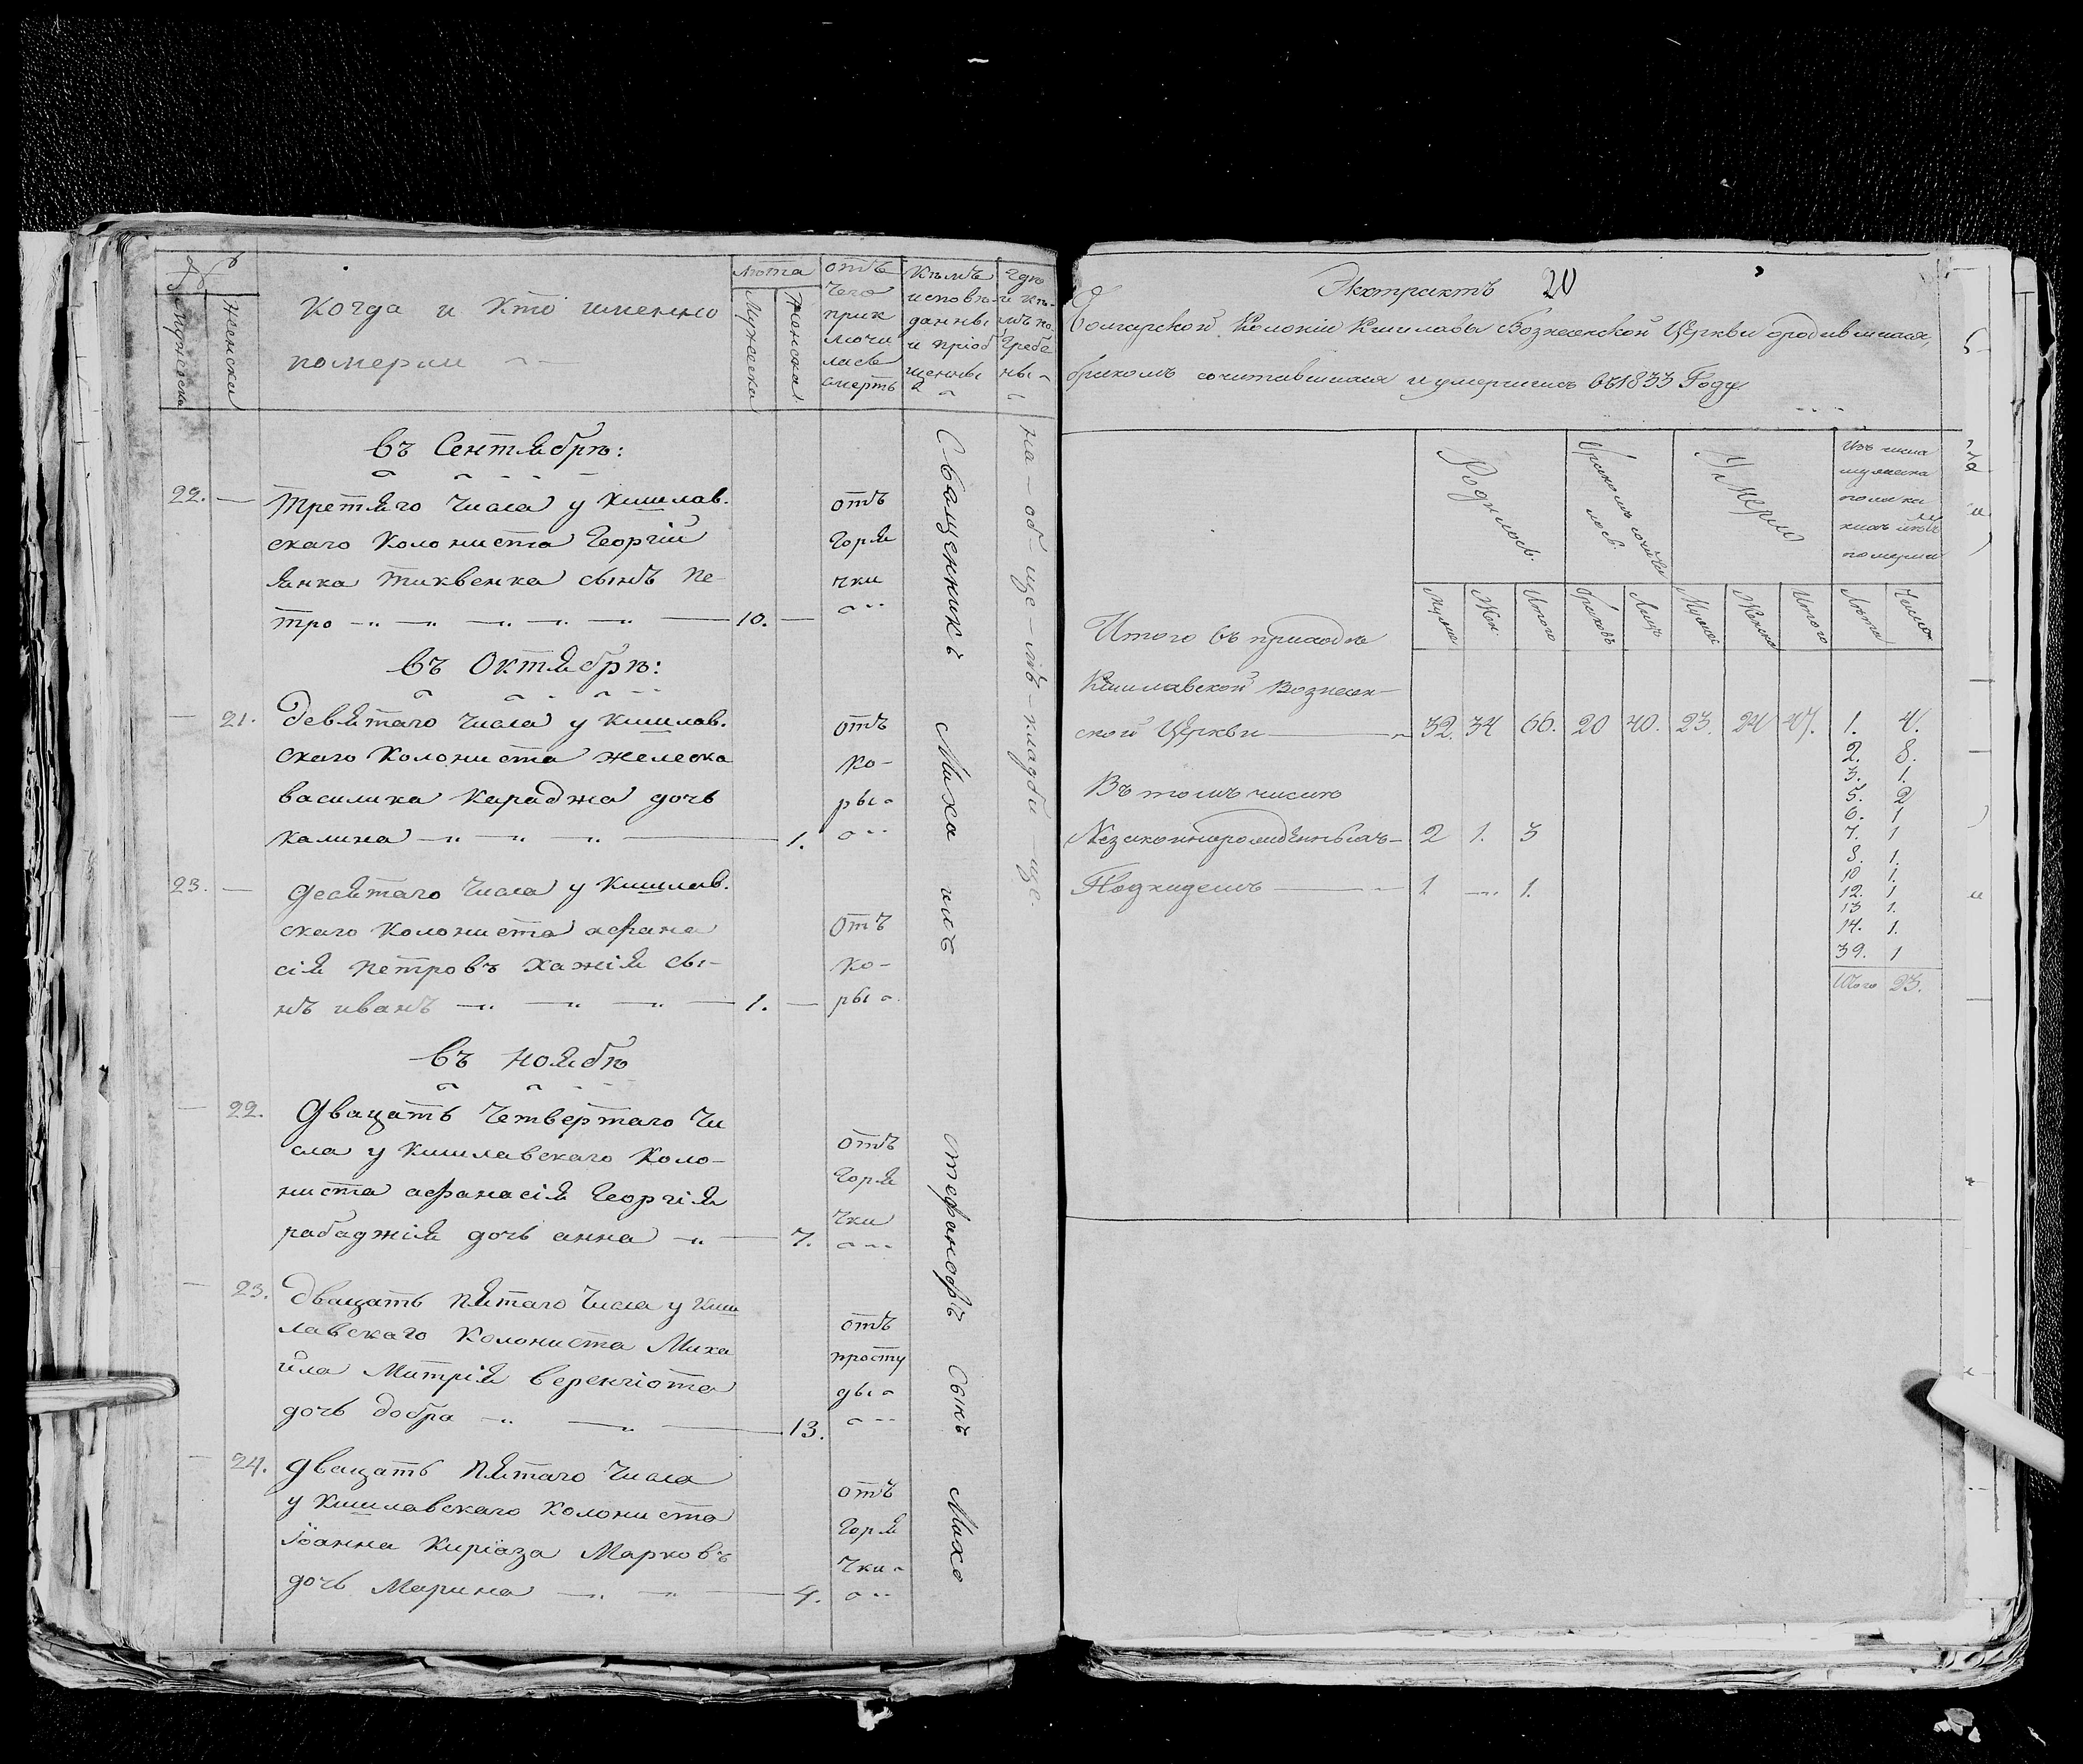 №
Мужеска
Женски
Когда и кто именно
померли
Лѣта
Мужеска
Женска
отъ
чего
прик
лючи
лась
смерть
Кѣмъ
исповѣ
данны
и пріоб
щенны
Гдѣ
и кѣ-
мъ по
гребе
ны
въ Сентябрѣ:
22. — третяго числа у кишлав.
скаго колониста Георгій
янка тиквенка сынъ пе
тро — 10. —
отъ
горя
чки
въ Октябрѣ:
— 21. девятаго числа у кишлав.
скаго колониста желеска
василика караджа дочь
калина — 1.
отъ
ко-
ры
23. — десятаго числа у кишлав.
скаго колониста афана
сія петровъ хажія сы-
нъ иванъ — 1. —
отъ
ко-
ры
въ ноябѣ
— 22. двацать четвертаго чи
сла у кишлавскаго коло-
ниста афанасія Георгія
рабаджія дочь анна — 7.
отъ
горя
чки
— 23. двацать пятаго числа у киш
лавскаго колониста Миха
ила Митрія веренгіота
дочь добра — 13.
отъ
просту
ды
— 24. двацать пятаго числа
у кишлавскаго колониста
Іоанна Киріаза Марковъ
дочь Марина — 4.
отъ
горя
чки
Священникъ Миха илъ стефанофъ Сынъ Михо
на-об-ще-мъ-кладби-ще.
Экстрактъ 20
Болгарской Колоніи Кишлава Вознесенской Церкви о родившихся,
бракомъ сочитавшихся и умершихъ въ 1833 Году
Родилось
Бракомъ сочита
лось
Умерло
Изъ числа
мужеска
пола ка
кихъ лѣтъ
померли
Муже
Жен
Итого
браковъ
Лицъ
Мужес
Женск
Итого
Лѣта
Число
Итого въ приходѣ
Кишлавской Вознесен-
ской Церкви — 32. 34 66. 20 40. 23. 24 47. 1. 4.
2. 8.
3. 1.
5. 2
6. 1
7. 1
8. 1.
10 1.
12. 1
13 1.
14. 1.
39. 1
Итого 23.
Въ томъ числѣ
Незаконнорожденныхъ — 2 1. 3
Подкидешъ — 1 — 1.